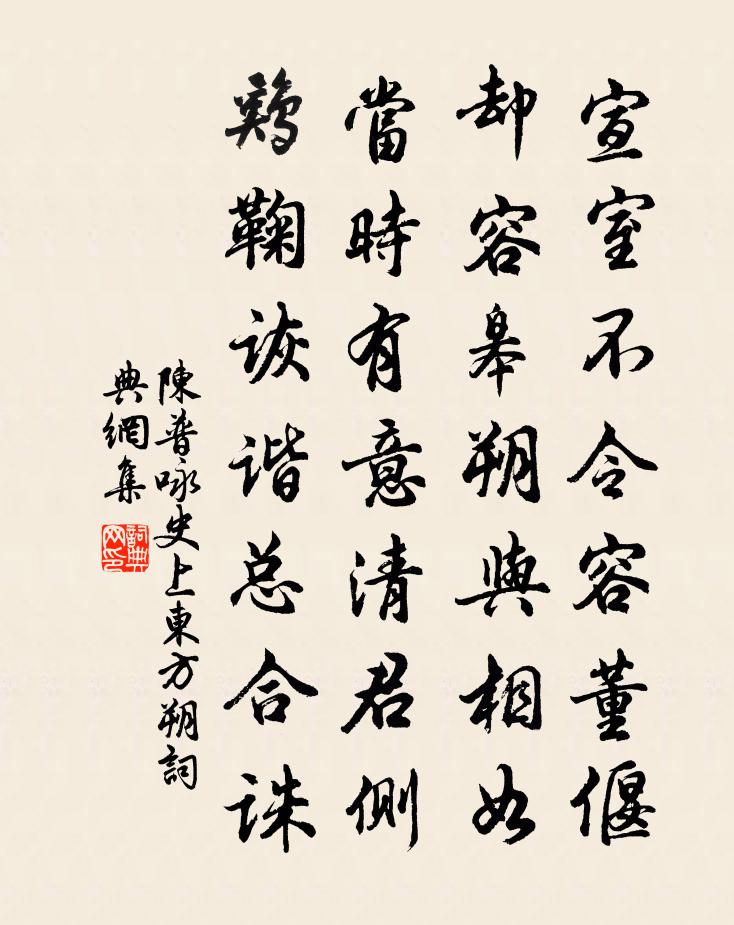 宣室不令容董偃
却容皋朔與相如
當時有意清君側
鶏鞠詼谐总合誅
陳普咏史上東方朔詞
典網集
詞典
网印